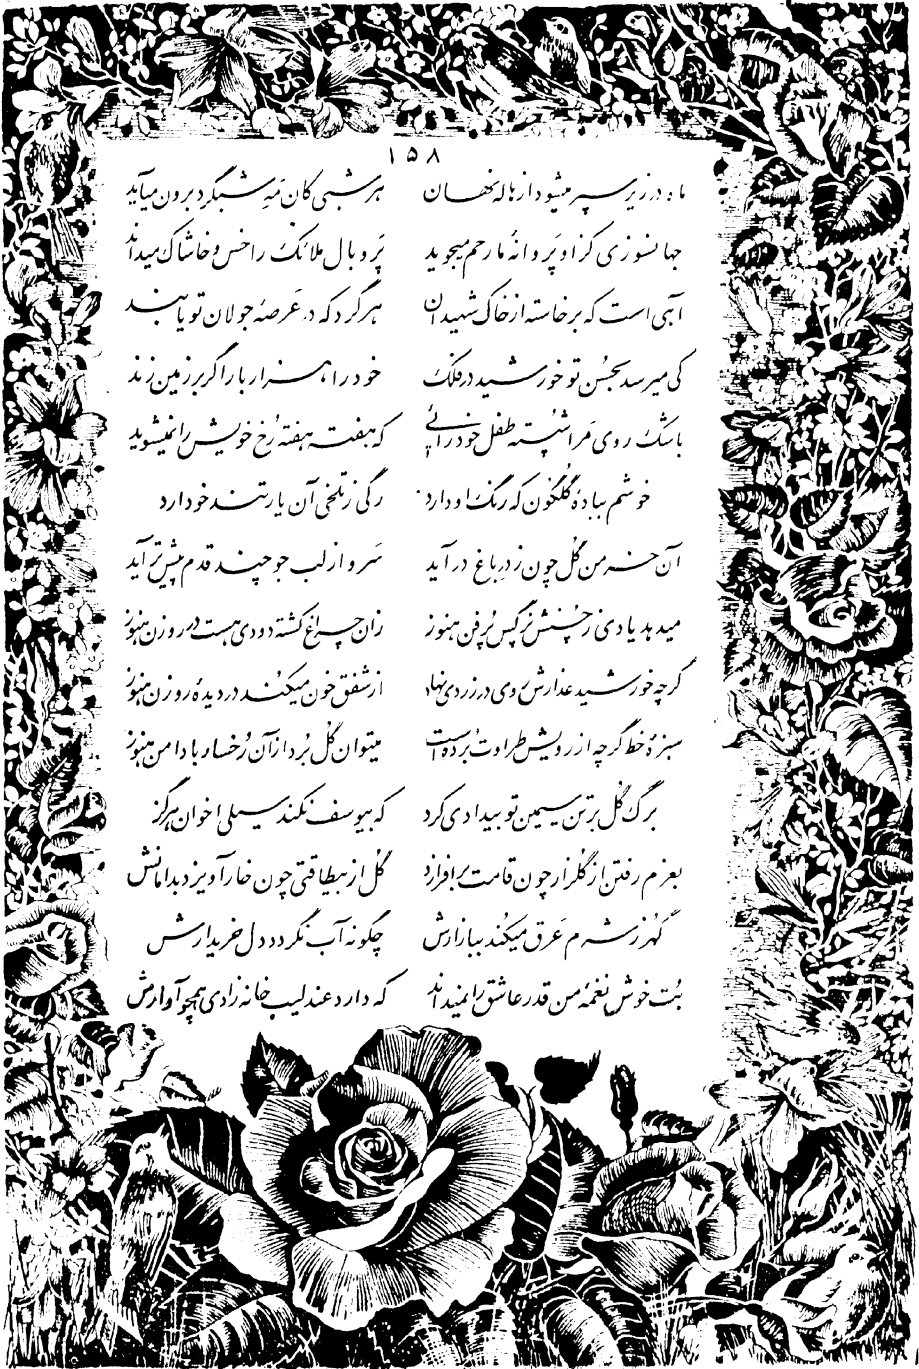 ۱۵۸
ماه در زیر سپر میشود از هاله نهان هر شبی کان مَهِ شبگرد برون میآید
جهانسوزی کز او پَروانهٔ ما رحم میجوید پَر و بال ملائک را خس و خاشاک میداند
آهی است که برخاسته از خاک شهیدان هر گرد که در عَرصهٔ جولان تو یابند
کی میرسد بحُسن تو خورشید در فلک خود را هزار بار اگر بر زمین زند
باشک روی مَرا شُسته طفل خودرائی که هفته هفته رُخ خویش را نمیشوید
خوشم بباده گُلگون که رنگ او دارد رگی ز تلخی آن یار تند خو دارد
آن خرمن گُل چون ز درِ باغ درآید سَرو از لب جو چند قدم پیش تر آید
میدهد یادی ز چشمش نرگس پُرفن هنوز زان چراغ کشته دودی هست در روزن هنوز
گرچه خورشید عذارش روی در زردی نهاد از شفق خون میکند در دیدهٔ روزن هنوز
سبزهٔ خط گرچه از رویش طراوت بُرده است میتوان گُل بُرد از آن رُخسار با دامن هنوز
برگ گُل بر تن سیمین تو بیدادی کرد که بیوسف نکند سیلی اخوان هرگز
بعزم رفتن از گلزار چون قامت برافرازد گُل از بیطاقتی چون خار آویزد بدامانش
گُهر ز شرم عَرق میکُند ببازارش چگونه آب نگردد دل خریدارش
بُت خوش نغمهٔ من قدر عاشق را نمیداند که دارد عندلیب خانه زادی همچو آوازش